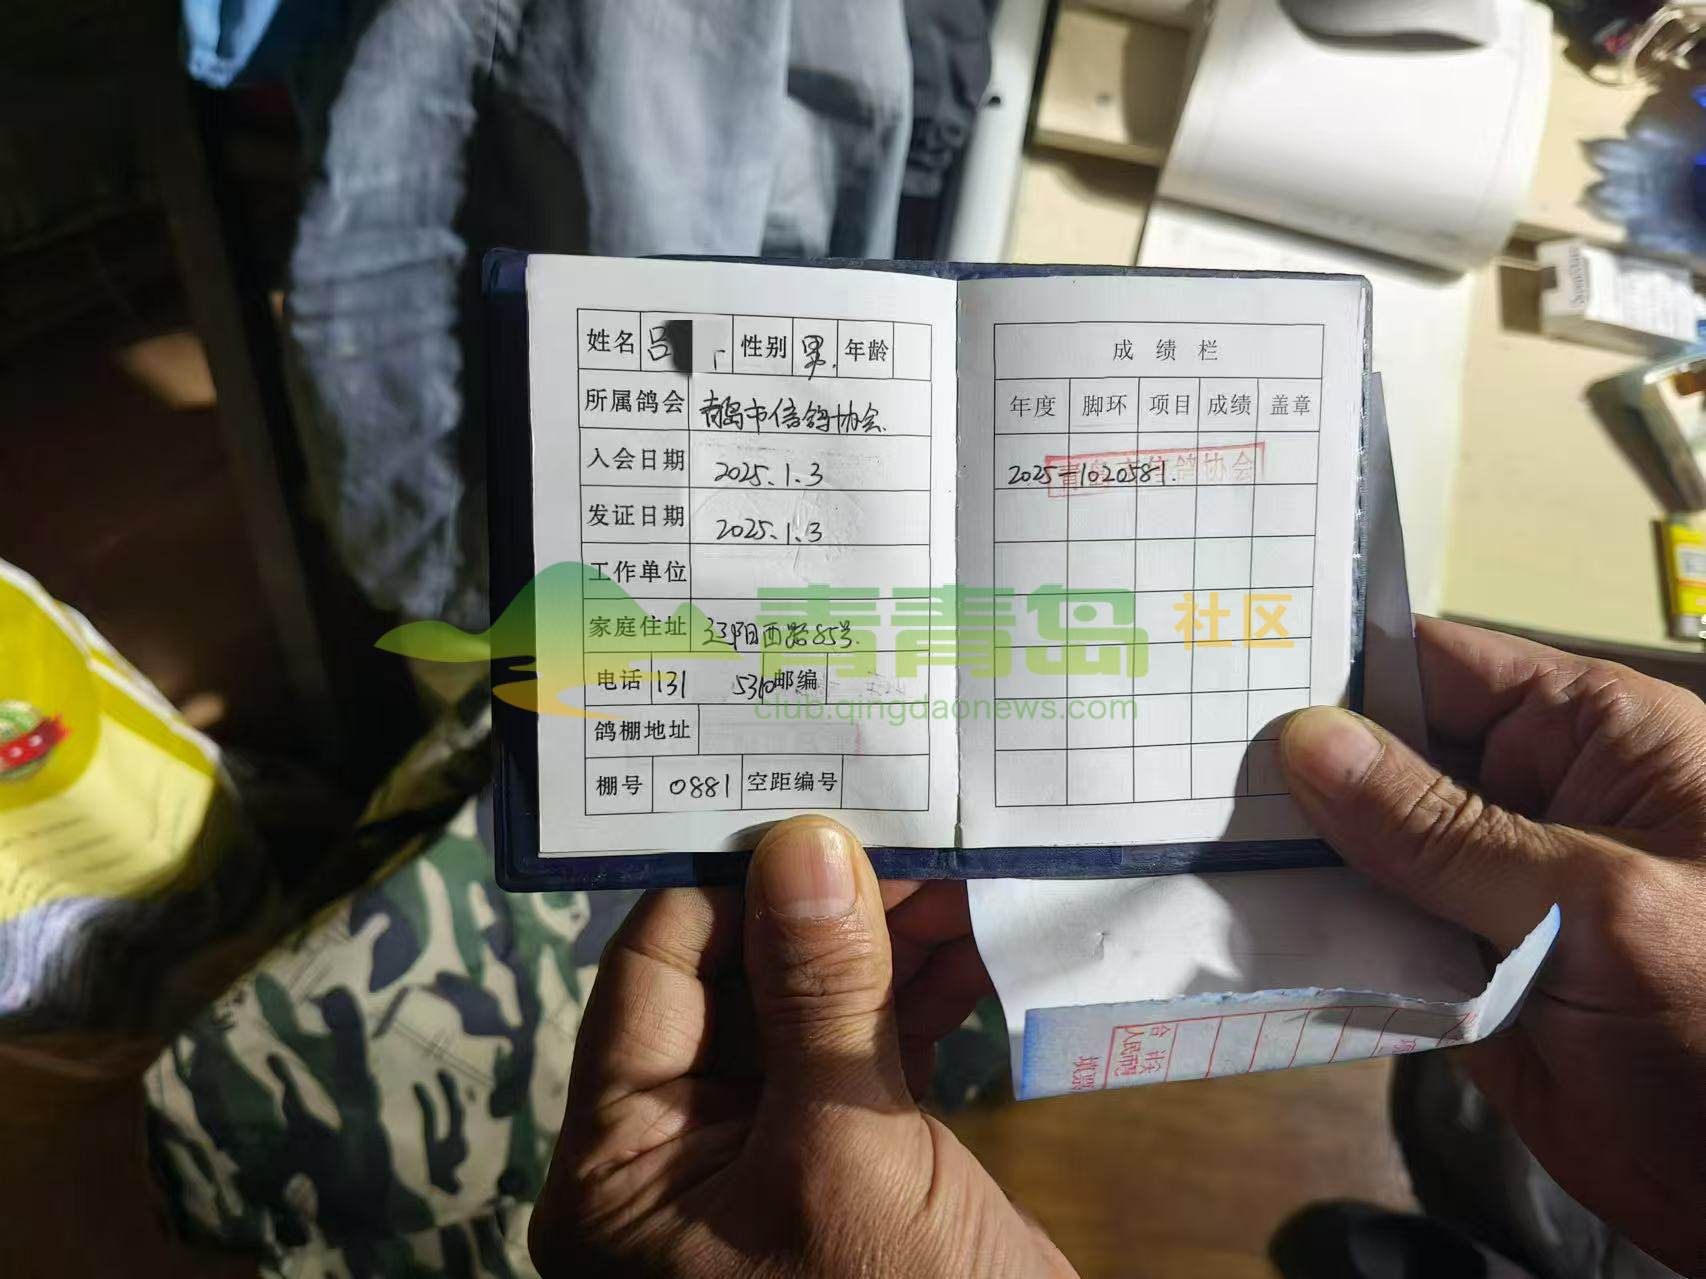 姓名 吕 性别 男. 年龄
所属鸽会 青岛市信鸽协会.
入会日期 2025.1.3
发证日期 2025.1.3
工作单位
家庭住址 辽阳西路85号.
电话 131 5310 邮编
鸽棚地址
棚号 0881 空距编号
成绩栏
年度 脚环 项目 成绩 盖章
2025-1020581.
青岛市信鸽协会
青青岛 社区
club.qingdaonews.com